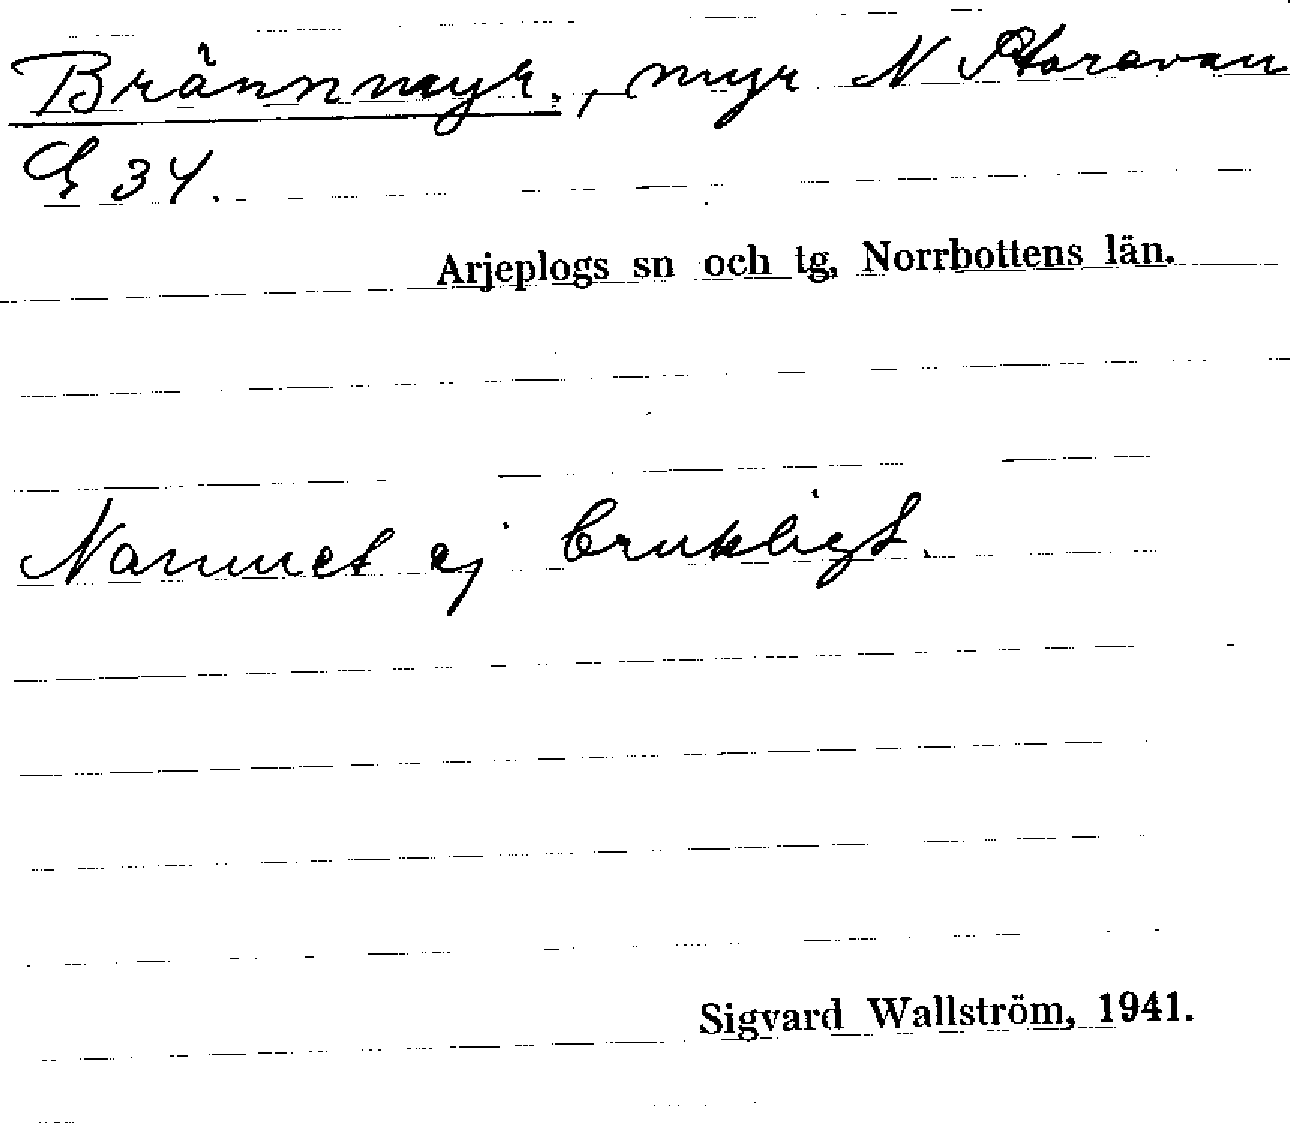 Brännmyr., myr N Storavan
G 34.
Arjeplogs sn och tg, Norrbottens län.
Namnet ej brukligt.
Sigvard Wallström, 1941.